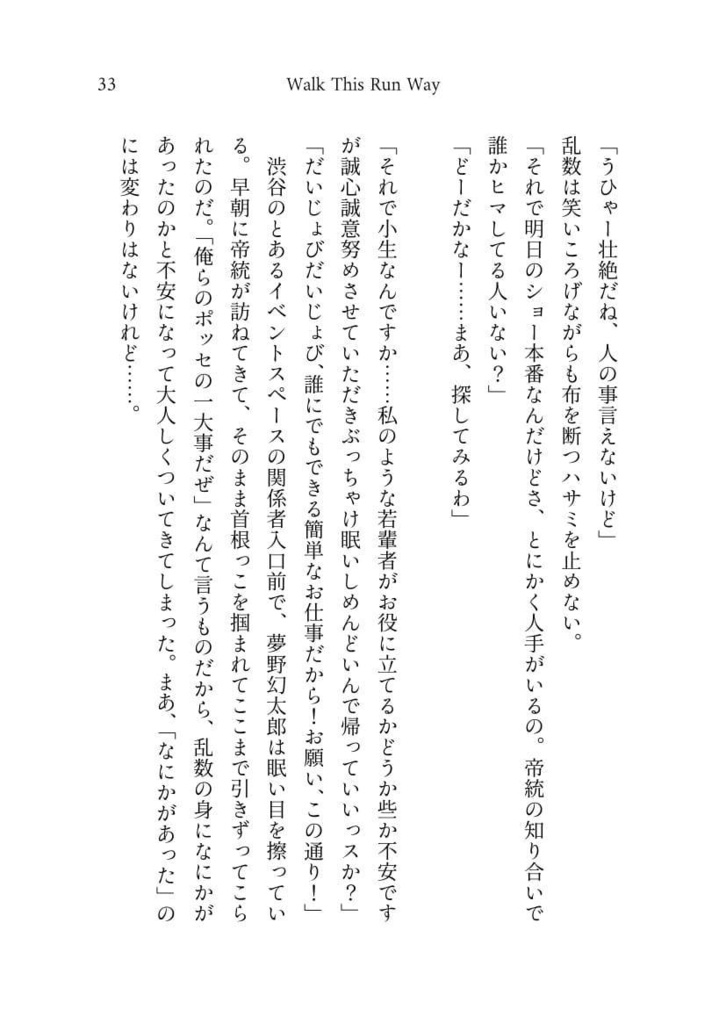 33
Walk This Run Way
「うひゃー壮絶だね、人の事言えないけど」
乱数は笑いころげながらも布を断つハサミを止めない。
「それで明日のショー本番なんだけどさ、とにかく人手がいるの。帝統の知り合いで
誰かヒマしてる人いない？」
「どーだかなー……まあ、探してみるわ」
「それで小生なんですか……私のような若輩者がお役に立てるかどうか些か不安です
が誠心誠意努めさせていただきぶっちゃけ眠いしめんどいんで帰っていいっスか？」
「だいじょびだいじょび、誰にでもできる簡単なお仕事だから！お願い、この通り！」
渋谷のとあるイベントスペースの関係者入口前で、夢野幻太郎は眠い目を擦ってい
る。早朝に帝統が訪ねてきて、そのまま首根っこを掴まれてここまで引きずってこら
れたのだ。「俺らのポッセの一大事だぜ」なんて言うものだから、乱数の身になにかが
あったのかと不安になって大人しくついてきてしまった。まあ、「なにかがあった」の
には変わりはないけれど……。